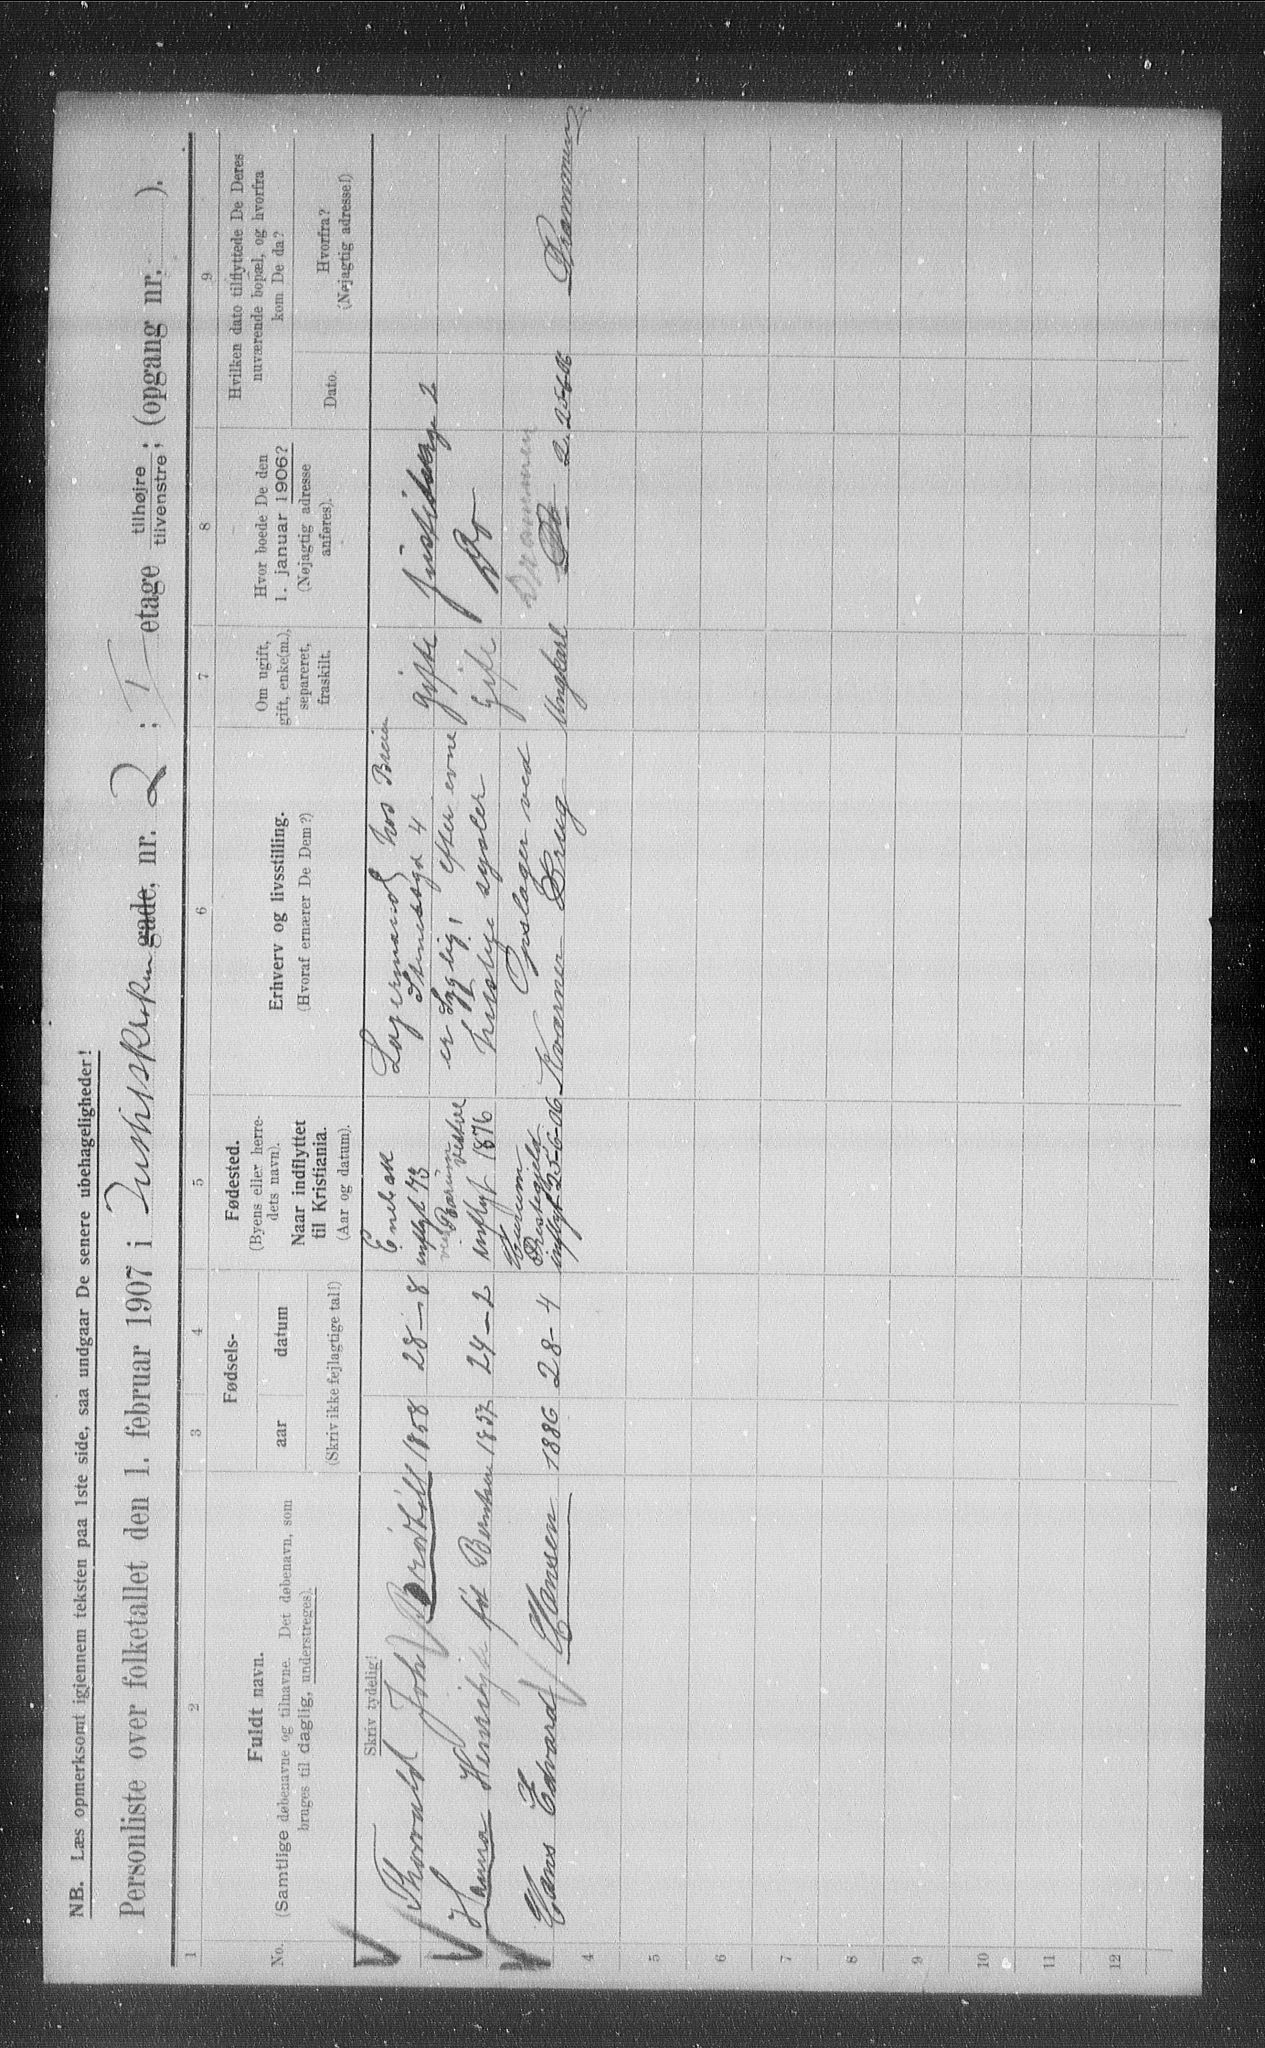 NB. Læs opmerksomt igjennem teksten paa 1ste side, saa undgaar De senere ubehageligheder!
Personliste over folketallet den 1. februar 1907 i gade, nr. 2 ; I etage tilhøjre tilvenstre; (opgang nr. ).
1 2 3 4 5 6 7 8 9
No.
Fuldt navn.
(Samtlige døbenavne og tilnavne. Det døbenavn, som
bruges til daglig, understreges).
Fødsels-
aar datum
(Skriv ikke fejlagtige tal!)
Fødested.
(Byens eller herre-
dets navn).
Naar indflyttet
til Kristiania.
(Aar og datum).
Erhverv og livsstilling.
(Hvoraf ernærer De Dem?)
Om ugift,
gift, enke(m.),
separeret,
fraskilt.
Hvor boede De den
1. januar 1906?
(Nøjagtig adresse
anføres).
Hvilken dato tilflyttede De Deres
nuværende bopæl, og hvorfra
kom De da?
Dato.
Hvorfra?
(Nøjagtig adresse!)
Skriv tydelig!
Thorvald Joh Bråthell 1858 28-8
Enebak
inflyt 73
Lagermand hos
4
gifte
2
Hanna født Berntsen 1857 24-2
Bærum
vestre
inflyt 1876
er Syglig! efter evne
huslige sysler
gift
Do
Hans Edvard Hansen 1886 28-4
inflyt 25-6-06
Opslager ved
Kværner Brug
Ungkarl
Drammen
Do
2. 25-6-06
Drammen
4
5
6
7
8
9
10
11
12